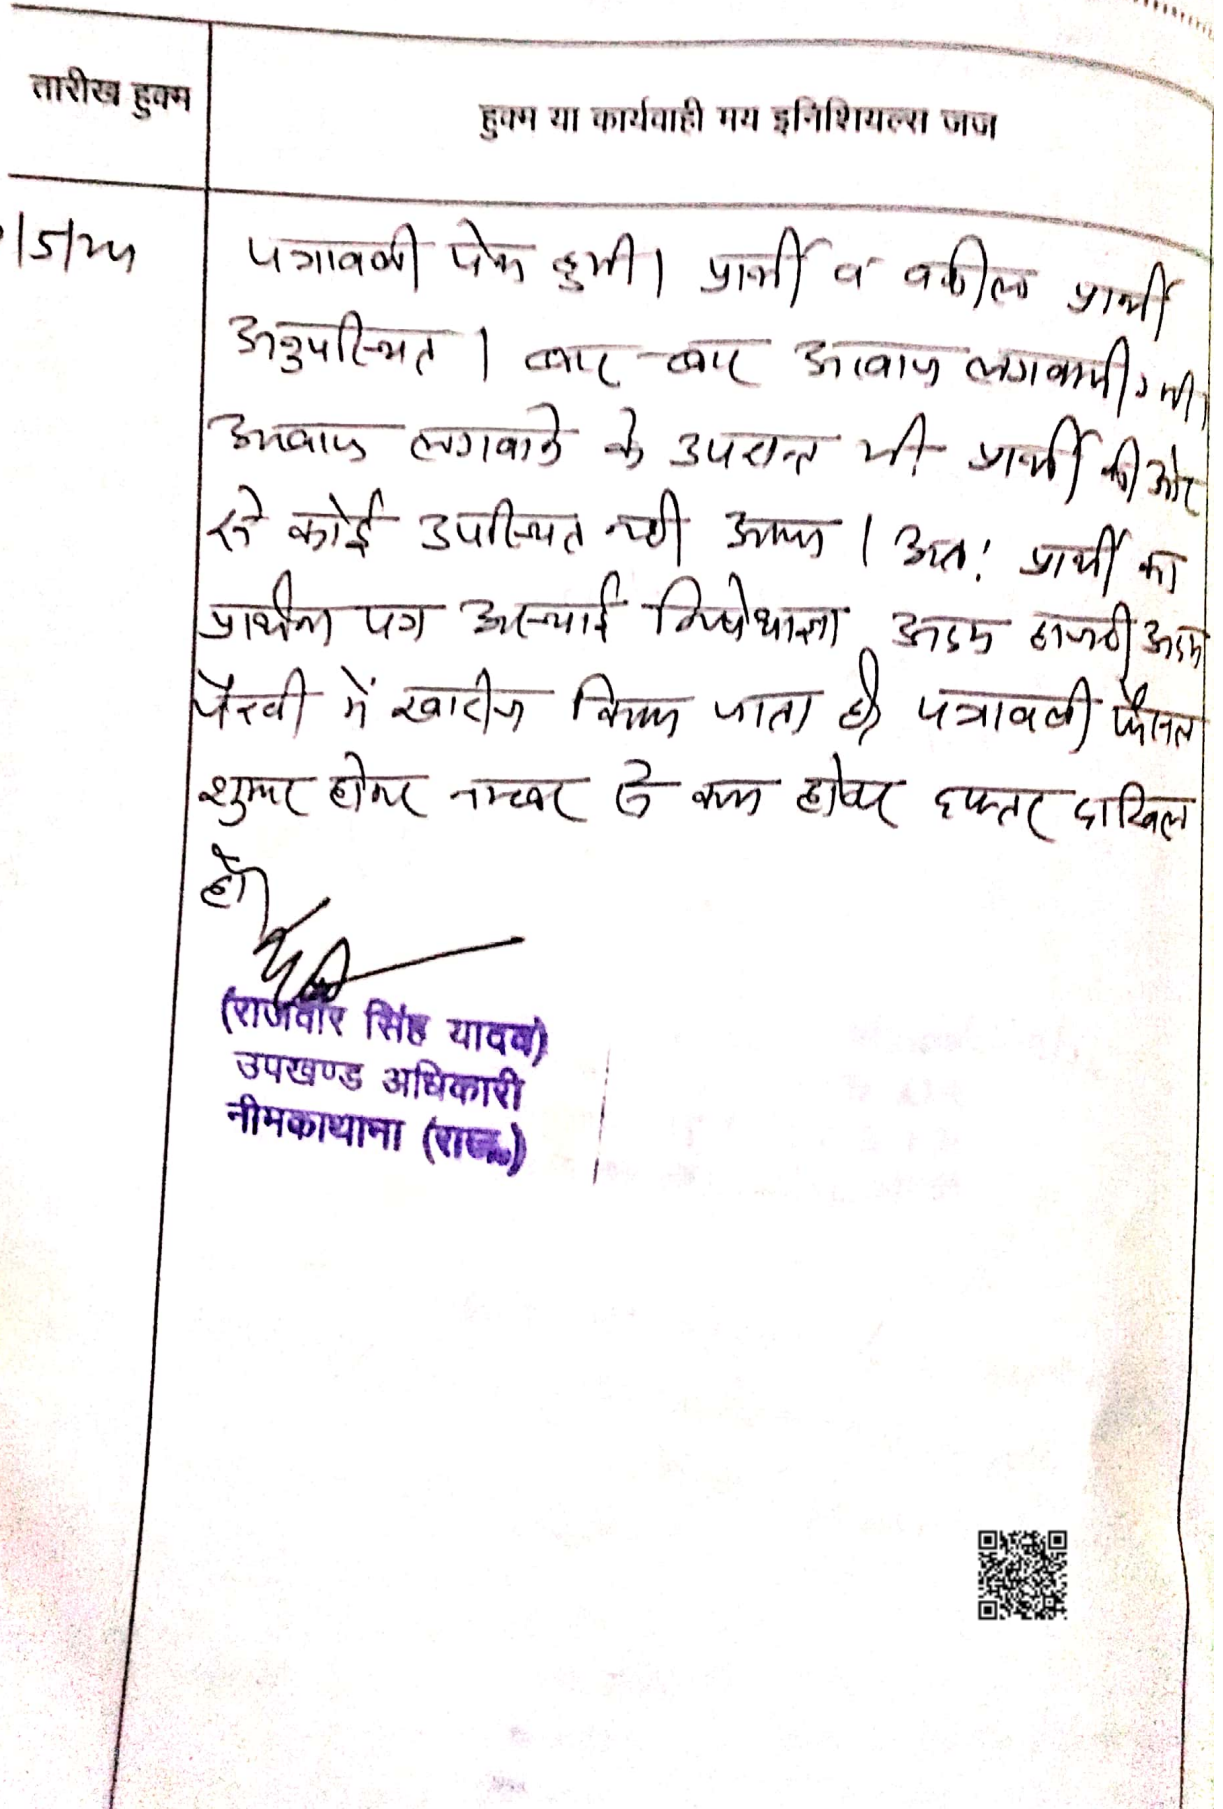 तारीख हुक्म
हुक्म या कार्यवाही मय इनिशियल्स जज
पत्रावली पेश हुयी। प्रार्थी व वकील प्रार्थी
अनुपस्थित। बार-बार आवाज लगवायी गयी।
आवाज लगवाने के उपरान्त भी प्रार्थी की ओर
से कोई उपस्थित नही आया। अतः प्रार्थी का
प्रार्थना पत्र अस्थाई निषेधाज्ञा अदम हाजरी अदम
पैरवी में खारीज किया जाता है। पत्रावली फैसल
शुमार होकर नम्बर से कम होकर दफ्तर दाखिल
हो।
(राजवीर सिंह यादव)
उपखण्ड अधिकारी
नीमकाथाना (राज०)